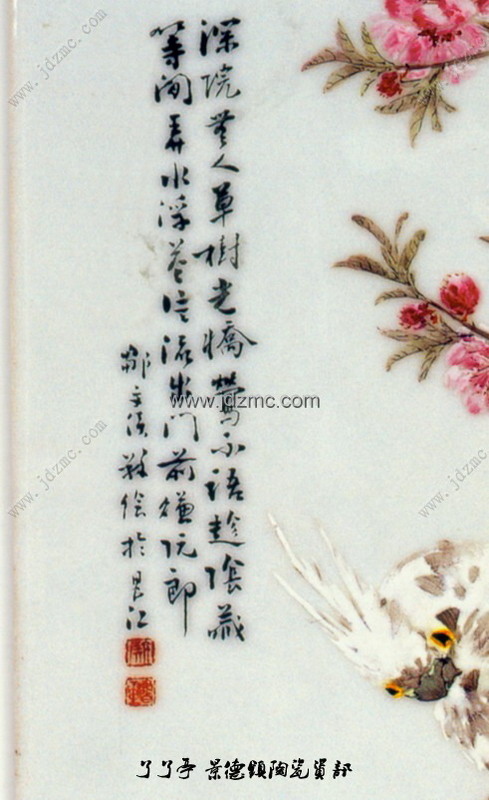 深院無人草樹光嬌鶯不語趁陰藏
等閒弄水浮花片流出門前賺阮郎
鄒文侯敬繪於昌江
www.jdzmc.com
www.jdzmc.com
www.jdzmc.com
www.jdzmc.com
了了亭 景德鎮陶瓷資部